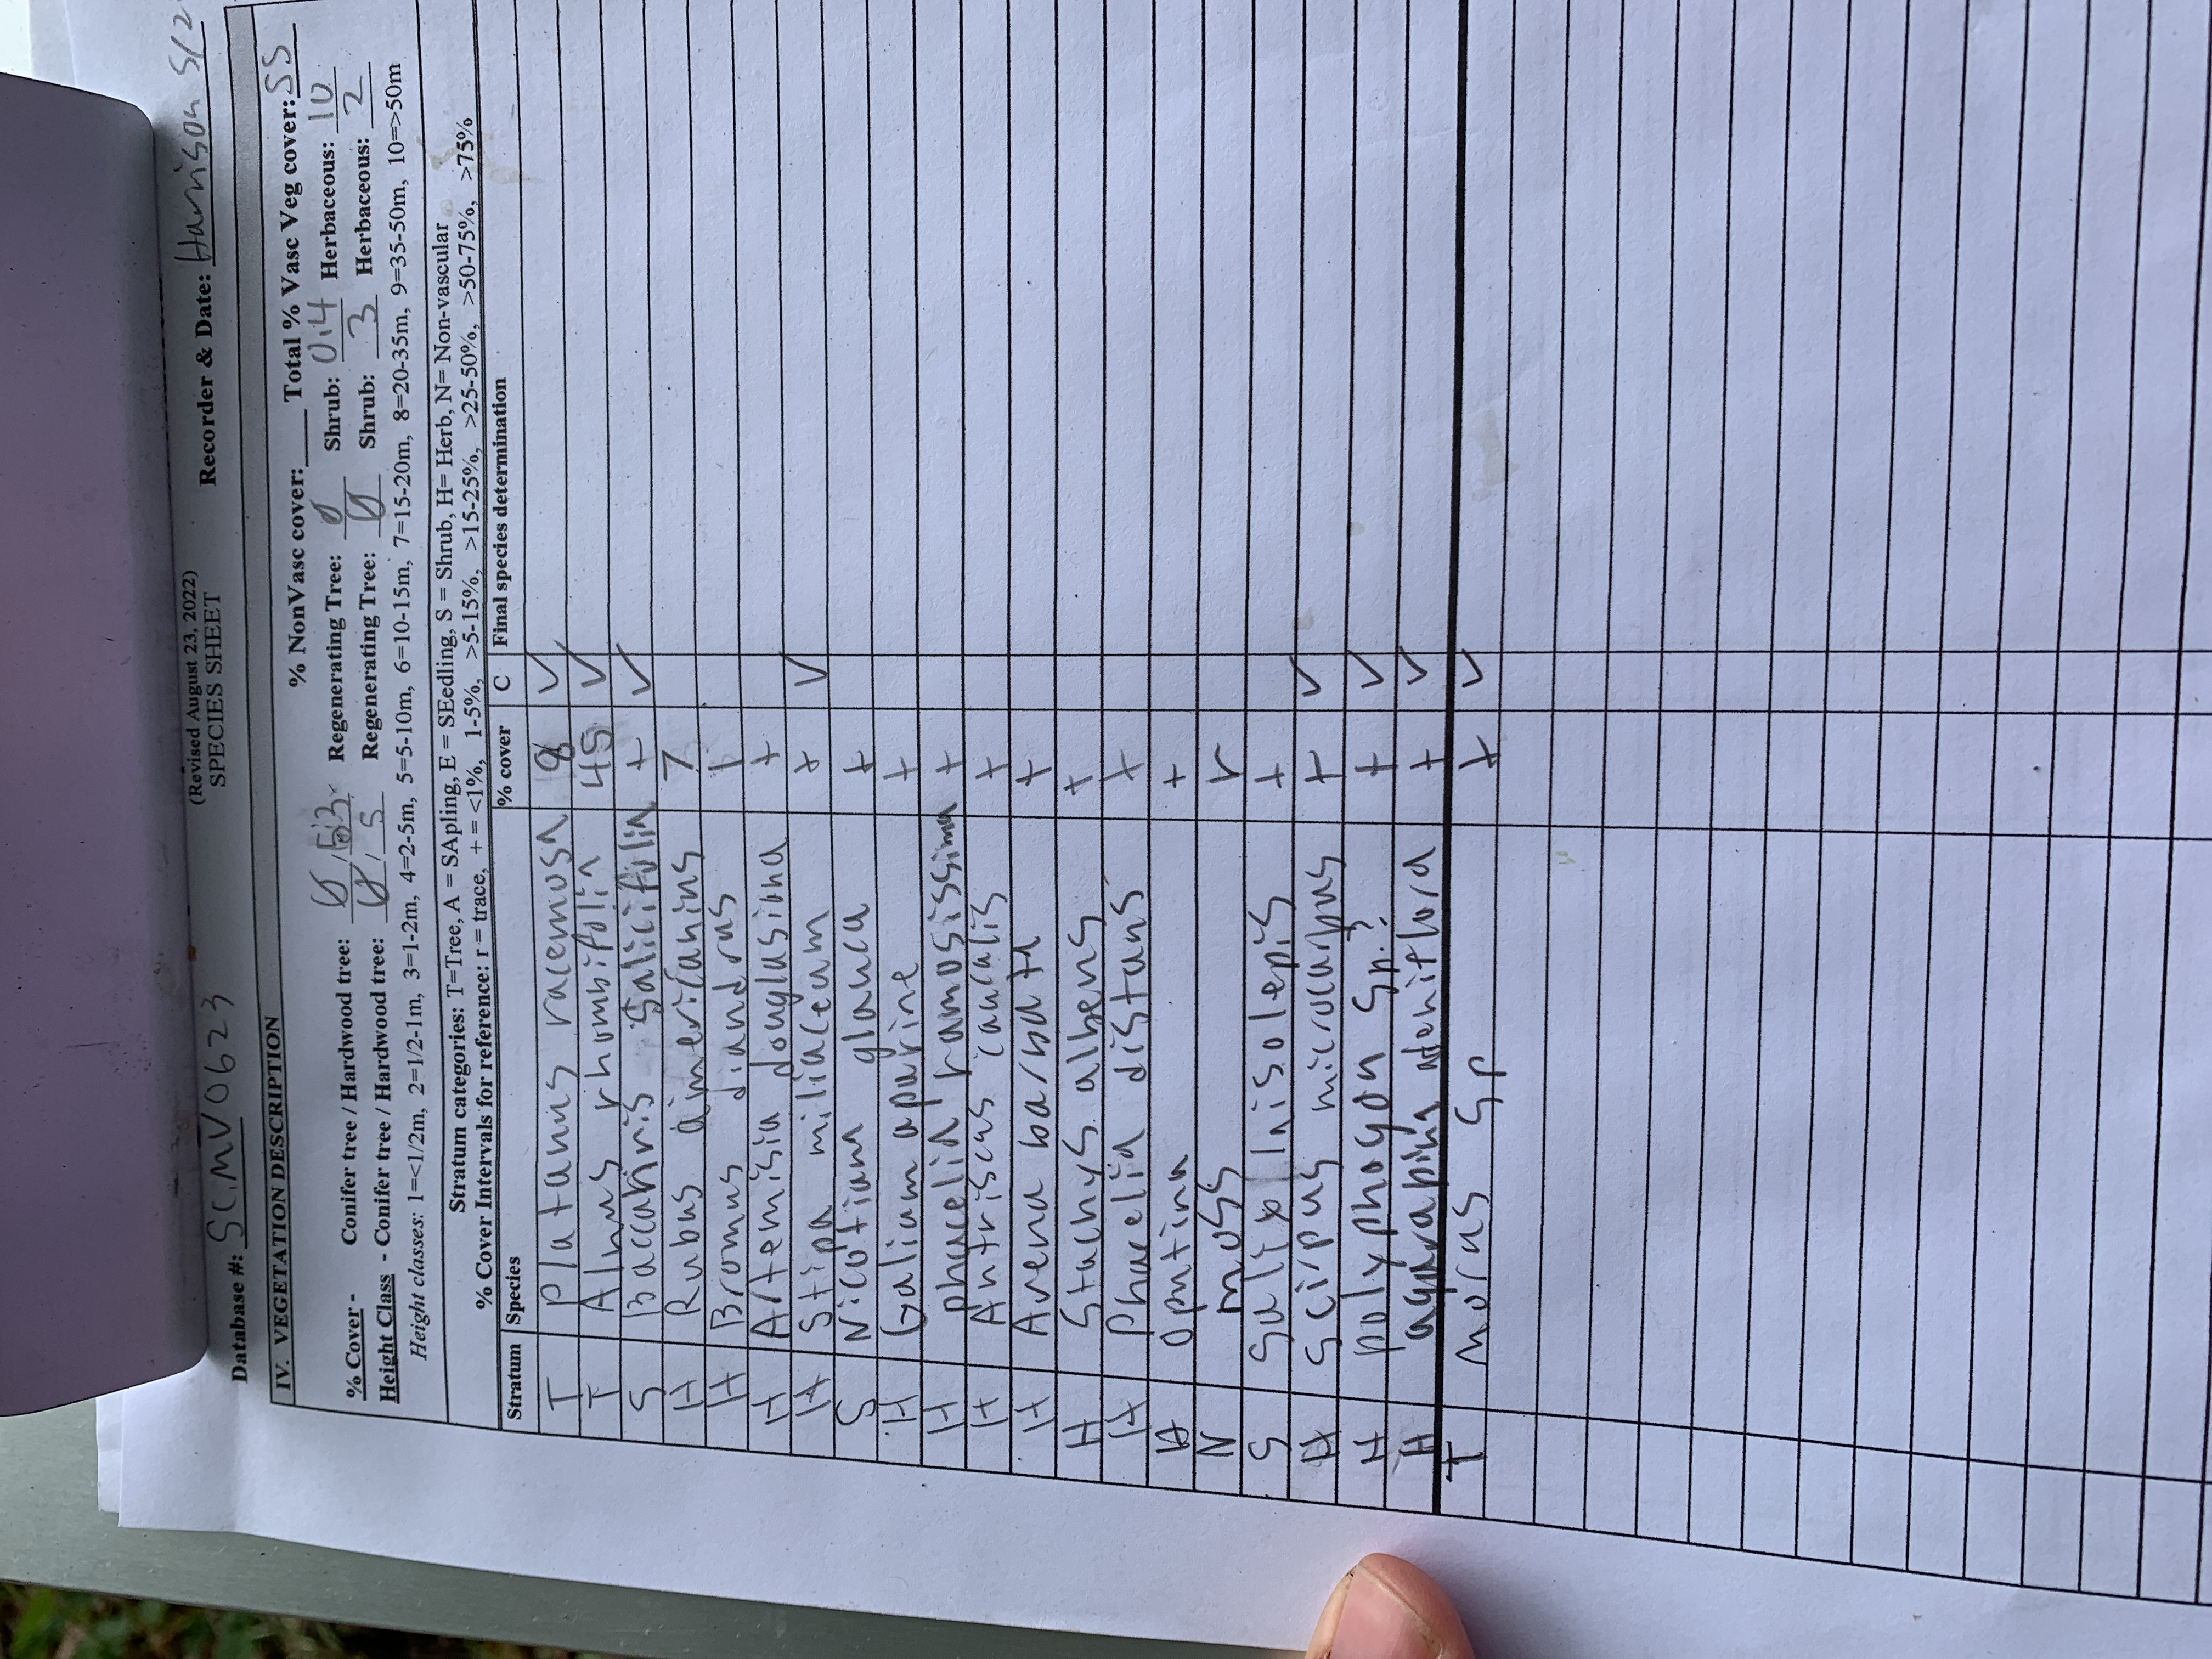 (Revised August 23, 2022)
Database #: SCMV0623 SPECIES SHEET Recorder & Date: Harrison 5/2
IV. VEGETATION DESCRIPTION
% NonVasc cover: ___ Total % Vasc Veg cover: 55
% Cover - Conifer tree / Hardwood tree: 0 / 53 Regenerating Tree: 0 Shrub: 0.4 Herbaceous: 10
Height Class - Conifer tree / Hardwood tree: 0 / 5 Regenerating Tree: 0 Shrub: 3 Herbaceous: 2
Height classes: 1=<1/2m, 2=1/2-1m, 3=1-2m, 4=2-5m, 5=5-10m, 6=10-15m, 7=15-20m, 8=20-35m, 9=35-50m, 10=>50m
Stratum categories: T=Tree, A = SApling, E = SEedling, S = Shrub, H= Herb, N= Non-vascular
% Cover Intervals for reference: r = trace, + = <1%, 1-5%, >5-15%, >15-25%, >25-50%, >50-75%, >75%
Stratum Species % cover C Final species determination
T Platanus racemosa 8 ✓
T Alnus rhombifolia 45 ✓
S Baccahris salicifolia + ✓
H Rubus americanius 7
H Bromus diandrus 1
H Artemisia douglasiana +
H Stipa miliaceum + ✓
S Nicotiana glauca +
H Galium aparine +
H phacelia ramosissima +
H Antriscus caucalis +
H Avena barbata +
H Stachys albens +
H Phacelia distans +
H Opntina +
N moss r
S Salix lasiolepis +
H Scirpus microcarpus + ✓
H polyphogon sp.? + ✓
H + ✓
T Morus sp + ✓